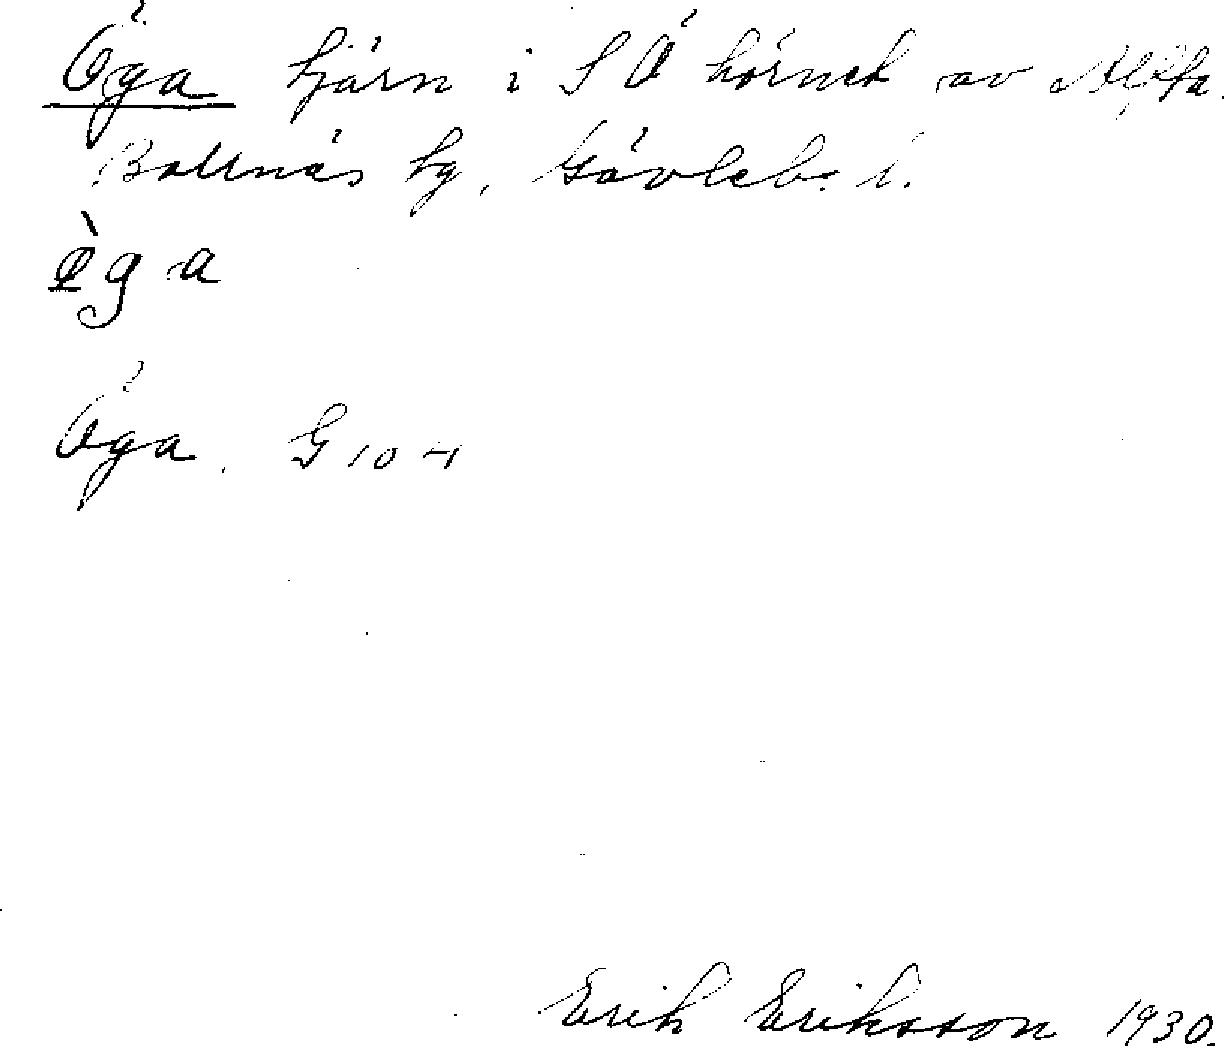 Öga tjärn i S Ö hörnet av Alfta.
Bollnäs tg, Gävleb. l.
ø̀ga
Öga. G 104
Erik Eriksson 1930.